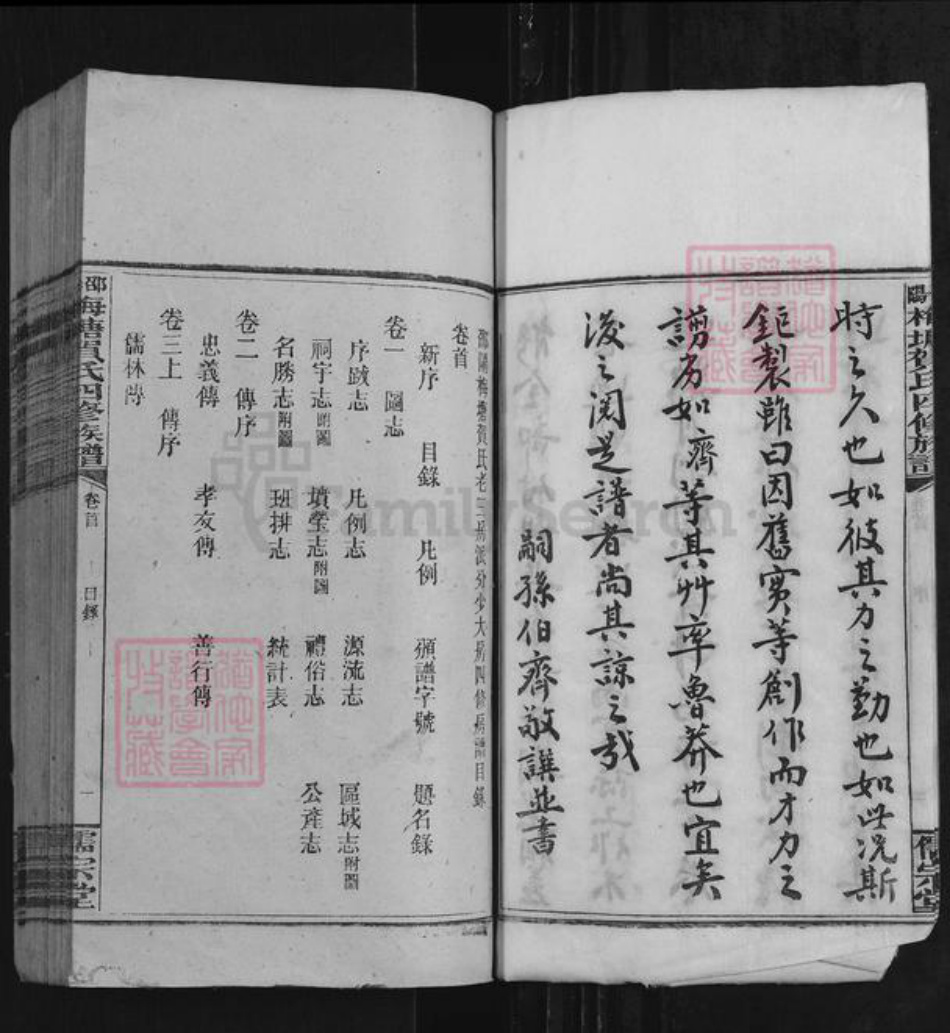 時之久也如彼其力之勤也如此況斯
鉅製雖曰因舊實等創作而才力之
謭劣如齊等其艸率魯莽也宜矣
後之閱是譜者尚其諒之哉
嗣孫伯齊敬譔並書
邵陽梅塘賀氏老三房派分少大房四修房譜目錄
卷首
新序 目錄 凡例 頒譜字號 題名錄
卷一 圖志
序跋志 凡例志 源流志 區域志附圖
祠宇志附圖 墳塋志附圖 禮俗志 公產志
名勝志附圖 班排志 統計表
卷二 傳序
忠義傳 孝友傳 善行傳
卷三上 傳序
儒林傳
邵陽梅塘賀氏四修族譜
卷首
目錄
一
儒宗堂
FamilySearch